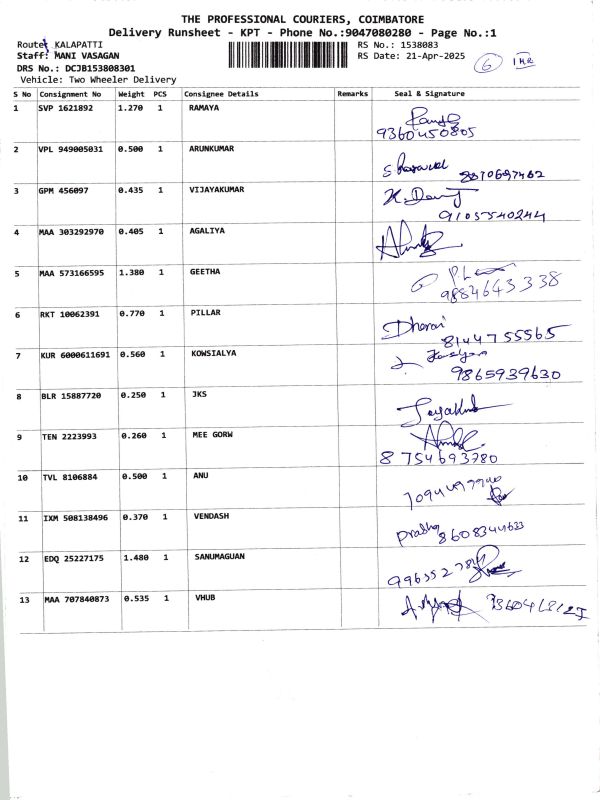 THE PROFESSIONAL COURIERS, COIMBATORE
Delivery Runsheet - KPT - Phone No.:9047080280 - Page No.:1
Route: KALAPATTI
RS No.: 1538083
Staff: MANI VASAGAN
RS Date: 21-Apr-2025
6
DRS No.: DCJB153808301
Vehicle: Two Wheeler Delivery
S No Consignment No Weight PCS Consignee Details Remarks Seal & Signature
1 SVP 1621892 1.270 1 RAMAYA
9360450805
2 VPL 949005031 0.500 1 ARUNKUMAR
8870697462
3 GPM 456097 0.435 1 VIJAYAKUMAR
9105540244
4 MAA 303292970 0.405 1 AGALIYA
5 MAA 573166595 1.380 1 GEETHA
9884643338
6 RKT 10062391 0.770 1 PILLAR
Dharai
8144755565
7 KUR 6000611691 0.560 1 KOWSIALYA
9865939630
8 BLR 15887720 0.250 1 JKS
9 TEN 2223993 0.260 1 MEE GORW
8754693780
10 TVL 8106884 0.500 1 ANU
11 IXM 508138496 0.370 1 VENDASH
8608344633
12 EDQ 25227175 1.480 1 SANUMAGUAN
13 MAA 707840873 0.535 1 VHUB